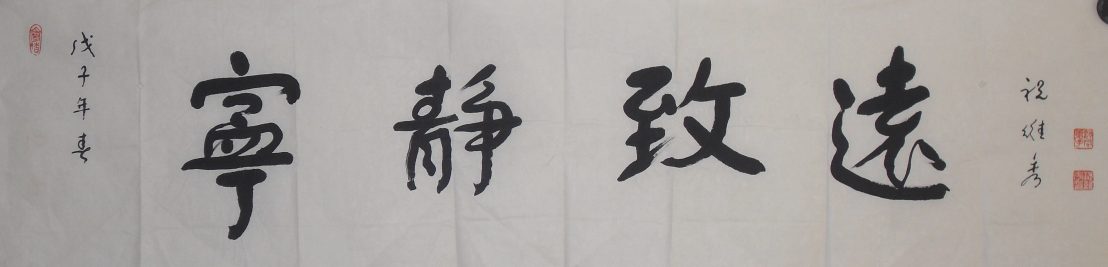 戊子年春
寧靜致遠
祝維秀